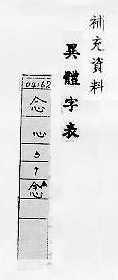 補充資料
異體字表
04162
念
心
5
4